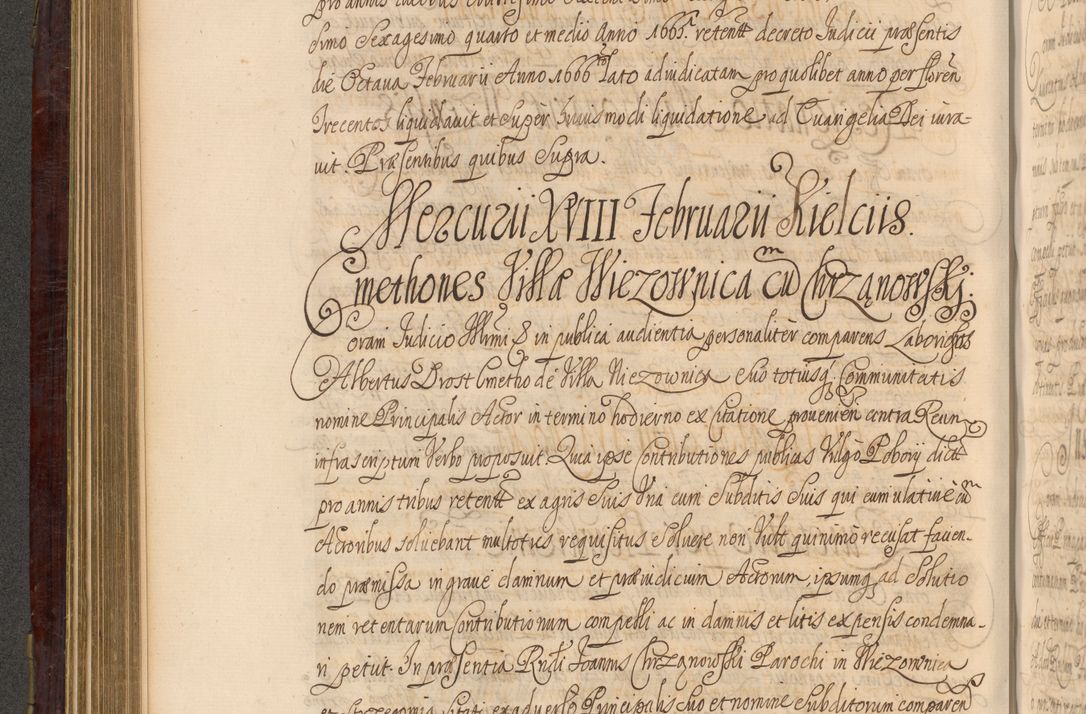 simo Sexagesimo quarto et medio Anno 1665. retentt decreto Iudicii præsentis
die Octava Februarii Anno 1666 Lato adiudicatam pro quolibet anno per floren
Trecentos liquidavit et super huiusmodi liquidatione ad Evangelia Dei iura-
vit. Præsentibus quibus Supra.
Mercurii XVIII Februarii Kielciis.
Cmethones Villæ Wiezownica cum Chrząnowski:
Coram Iudicio Illmi & in publica audientia personaliter comparens Laboriosus
Albertus Drost Cmetho de Villa Wiezownica Suo totiusq Communitatis
nomine Principalis Actor in termino hodierno ex Citatione provenien contra Reum
infrascriptum Verbo proposuit. Quia ipse Contributiones publicas Vulgo Pobory dict
pro annis tribus retentt ex agris Suis Una cum Subditis Suis qui cumulative cum
Actoribus solvebant multoties requisitus Solvere non Vult quinimo recusat faven-
do præmissa in grave damnum et præiudicium Actorum, ipsumq ad Solutio
nem retentarum Contributionum compelli ac in damnis et litis expensis condemna-
ri petiit. In præsentia Rndi Ioannis Chrząnowski Parochi in Wiezownica
ex adverso Principalis Suo et nomine Subditorum comparen